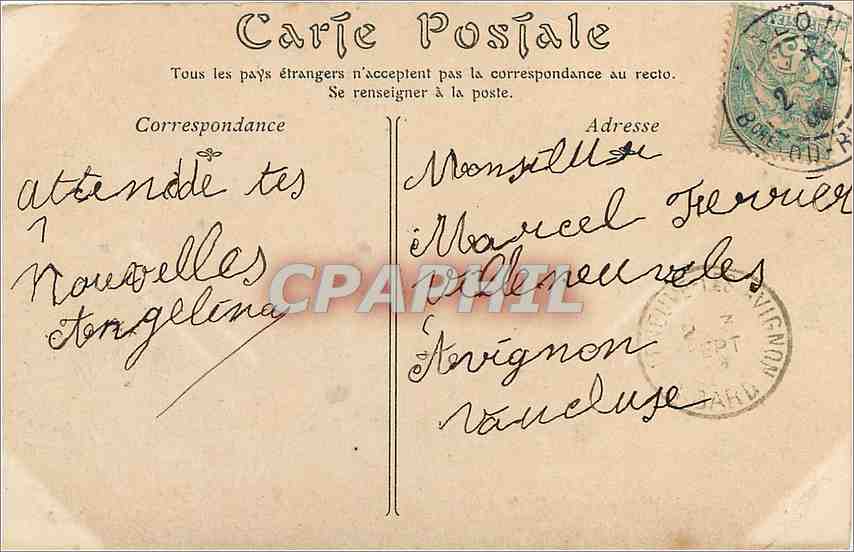 Carte Postale
Tous les pays étrangers n'acceptent pas la correspondance au recto.
Se renseigner à la poste.
Correspondance
Adresse
attende tes
nouvelles
Angelina
Monsieur
Marcel Ferrier
Villeneuve les
Avignon
Vaucluse
CPAPHIL
AVIGNON
SEPT
GARD